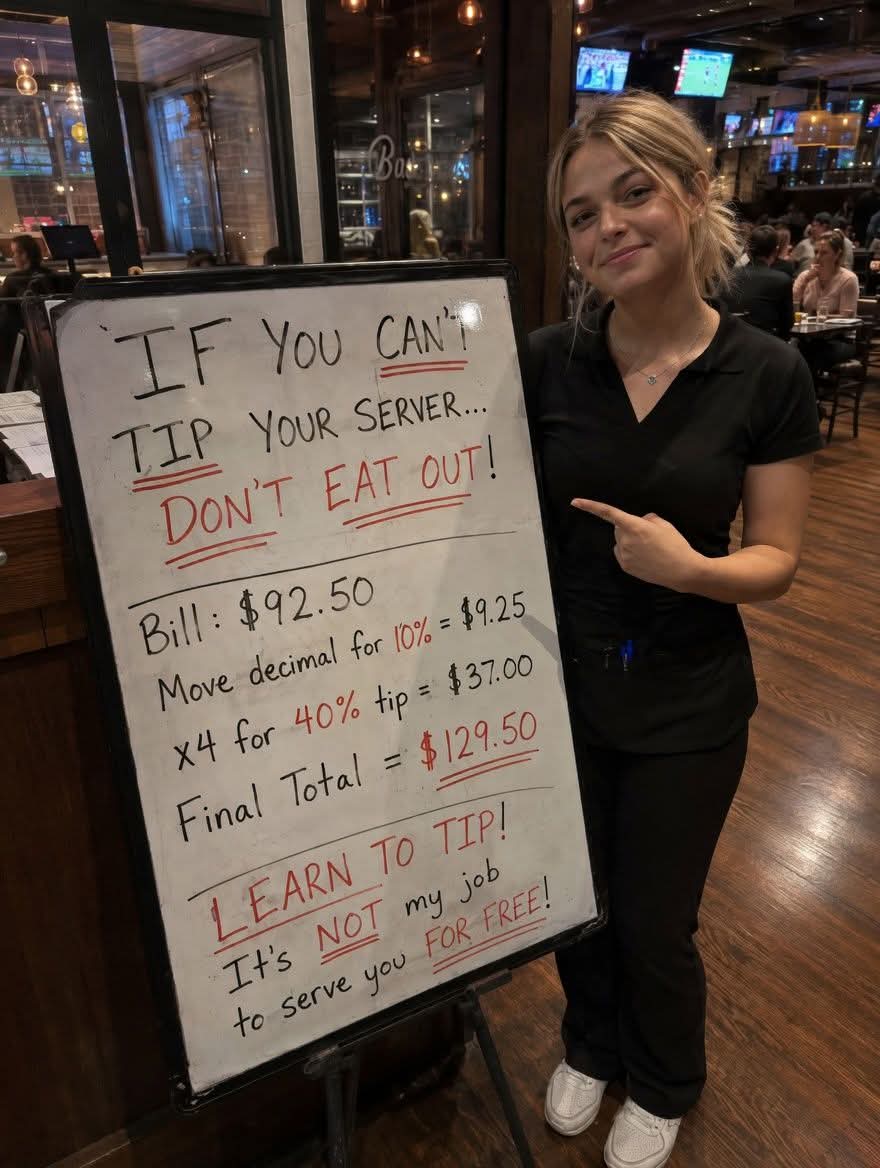 IF YOU CAN'T
TIP YOUR SERVER...
DON'T EAT OUT!
Bill: $92.50
Move decimal for 10% = $9.25
x4 for 40% tip = $37.00
Final Total = $129.50
LEARN TO TIP!
It's NOT my job
to serve you FOR FREE!
Ba